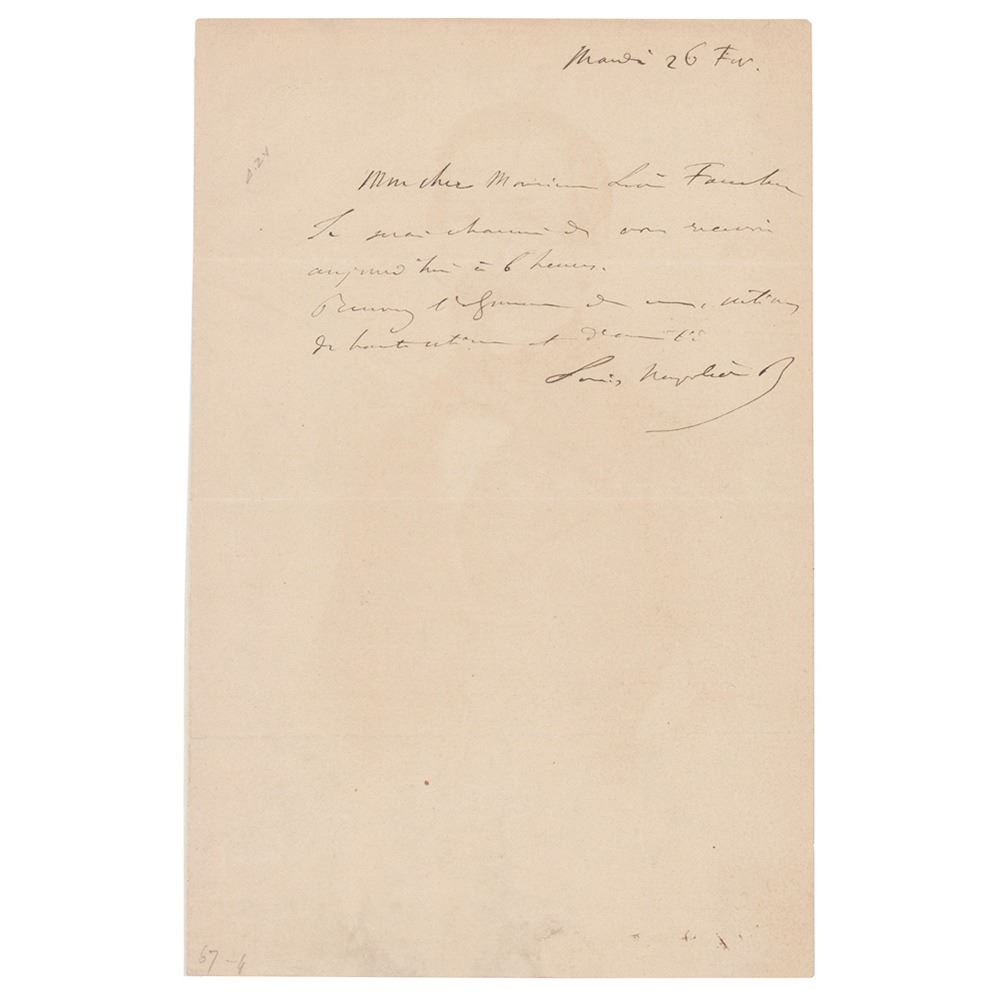 Mardi 26 Fev.
Mon cher Monsieur Léon Faucher
Je serai charmé de vous recevoir
aujourd'hui à 6 heures.
Recevez l'assurance de mes sentimens
de haute estime et d'amitié
Louis Napoléon B
67-4